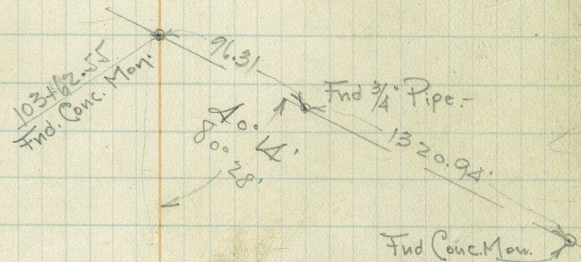 103+62.55
Fnd. Conc. Mon.
96.31
Fnd 3/4" Pipe.-
40. 14.
80. 28.
1320.94'
Fnd Conc. Mon.